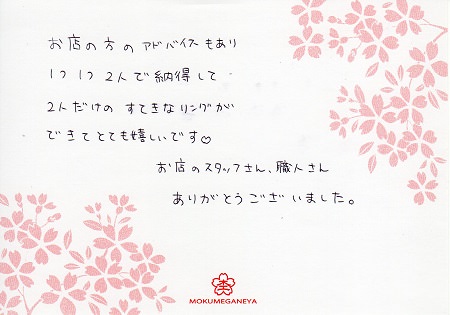 お店の方のアドバイスもあり
1つ1つ2人で納得して
2人だけのすてきなリングが
できてとても嬉しいです♡
お店のスタッフさん、職人さん
ありがとうございました。
MOKUMEGANEYA